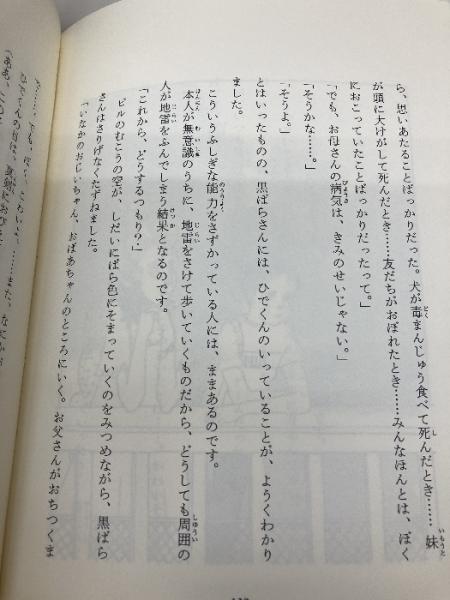 ら、思いあたることばっかりだった。犬が毒まんじゅう食べて死んだとき……妹
が頭に大けがして死んだとき……友だちがおぼれたとき……みんなほんとは、ぼく
におこっていたことばっかりだったって。」
「でも、お母さんの病気は、きみのせいじゃない。」
「そうかな……。」
「そうよ。」
とはいったものの、黒ばらさんには、ひでくんのいっていることが、ようくわかり
ました。
こういうふしぎな能力をさずかっている人には、ままあるのです。
本人が無意識のうちに、地雷をさけて歩いていくものだから、どうしても周囲の
人が地雷をふんでしまう結果となるのです。
「これから、どうするつもり？」
ビルのむこうの空が、しだいにばら色にそまっていくのをみつめながら、黒ばら
さんはさりげなくたずねました。
「いなかのおじいちゃん、おばあちゃんのところにいく。お父さんがおちつくま